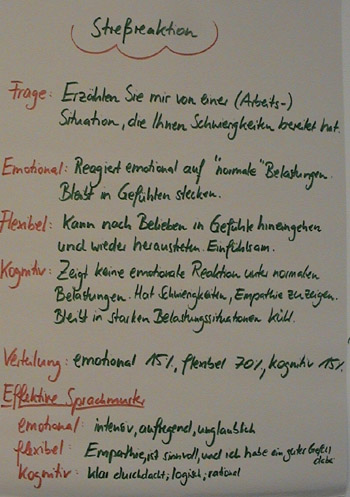 Streßreaktion
Frage: Erzählen Sie mir von einer (Arbeits-)
Situation, die Ihnen Schwierigkeiten bereitet hat.
Emotional: Reagiert emotional auf "normale" Belastungen.
Bleibt in Gefühlen stecken.
Flexibel: Kann nach Belieben in Gefühle hineingehen
und wieder heraustreten. Einfühlsam.
Kognitiv: Zeigt keine emotionale Reaktion unter normalen
Belastungen. Hat Schwierigkeiten, Empathie zu zeigen.
Bleibt in starken Belastungssituationen kühl.
Verteilung: emotional 15%, flexibel 70%, kognitiv 15%
Effektive Sprachmuster
emotional: intensiv, aufregend, unglaublich
flexibel: Empathie, ist sinnvoll, und ich habe ein gutes Gefühl
dabei
Kognitiv: klar durchdacht, logisch, rational